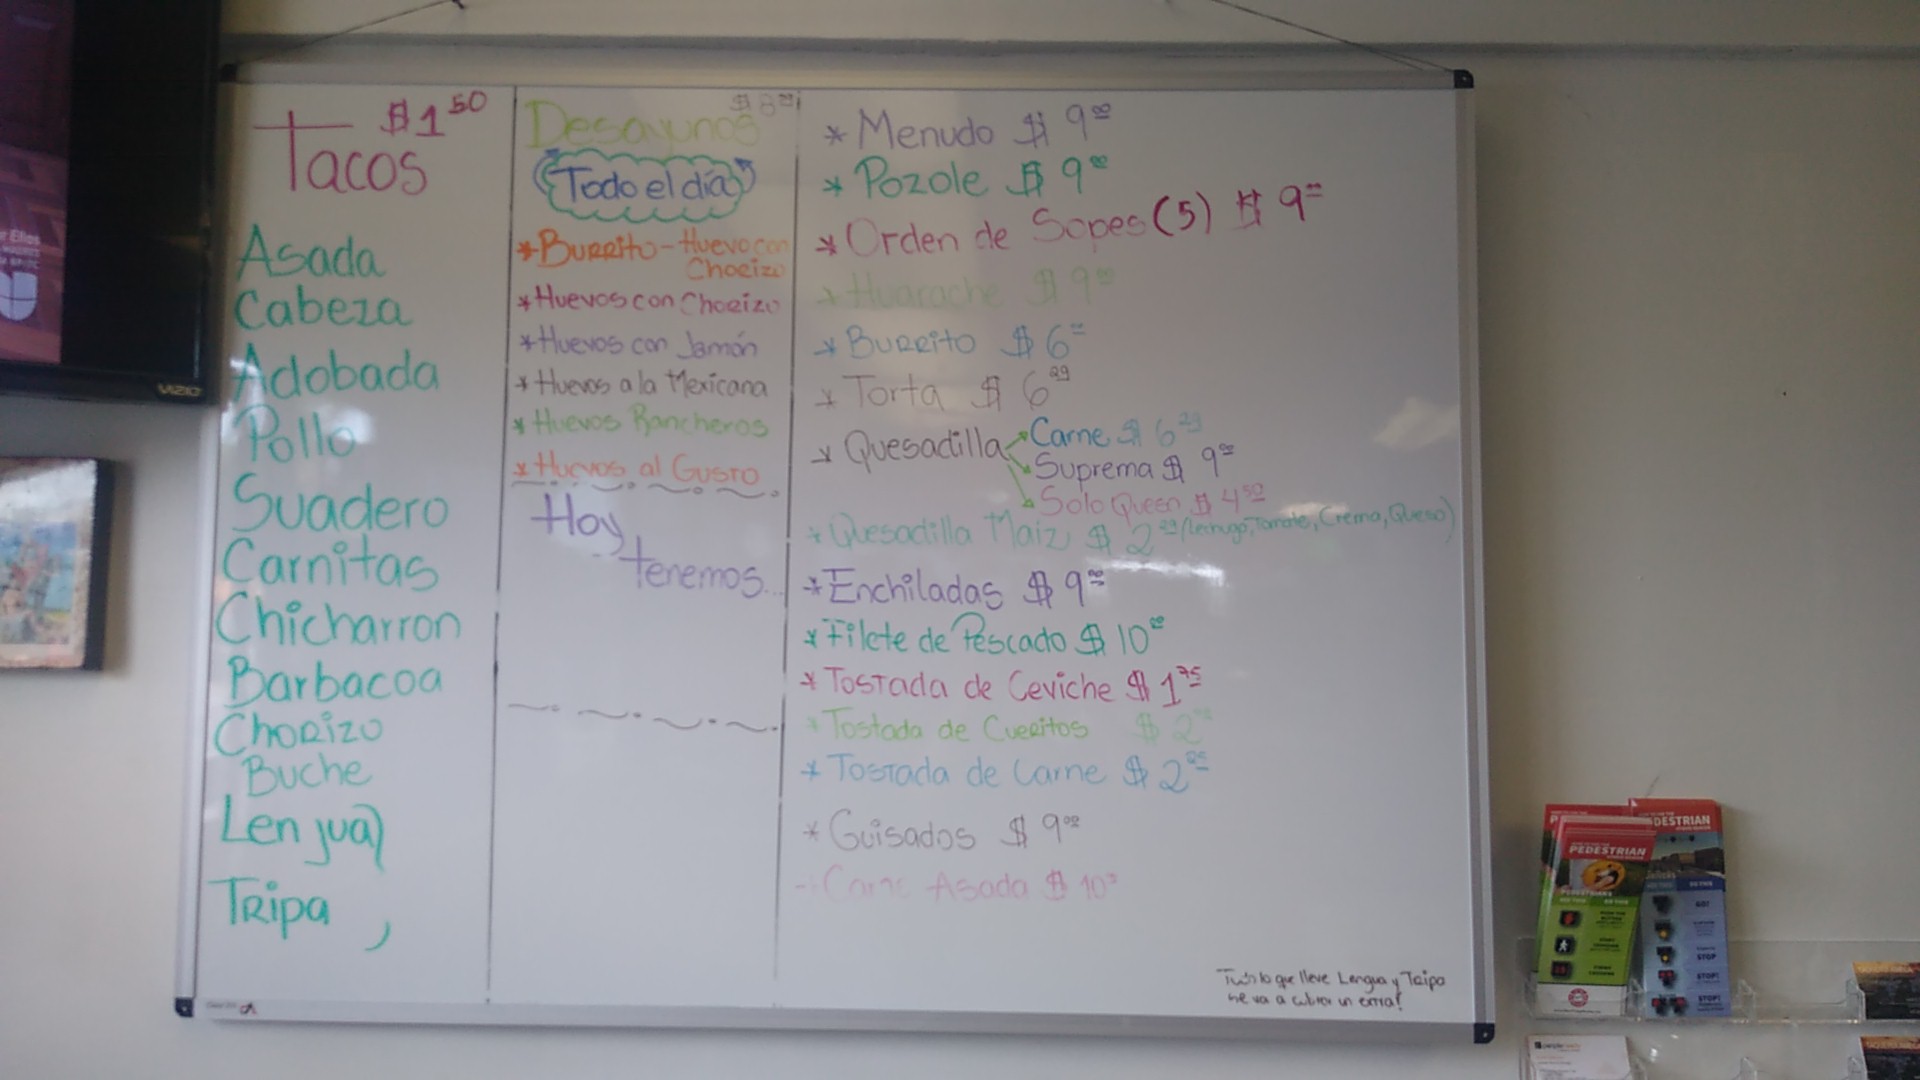 Tacos $1 50
Asada
Cabeza
Adobada
Pollo
Suadero
Carnitas
Chicharron
Barbacoa
Chorizo
Buche
Lengua
Tripa
Desayunos
Todo el día
* Burrito - Huevo con
Chorizo
* Huevos con Chorizo
* Huevos con Jamón
* Huevos a la Mexicana
* Huevos Rancheros
* Huevos al Gusto
Hoy
tenemos...
* Menudo $ 9 00
* Pozole $ 9 00
* Orden de Sopes (5) $ 9
* Huarache $ 9 00
* Burrito $ 6
* Torta $ 6 29
* Quesadilla Carne $ 6
Suprema $ 9
Solo Queso $ 4 50
* Quesadilla Maiz $ 2 (Lechuga, Tomate, Crema, Queso)
* Enchiladas $ 9 00
* Filete de Pescado $ 10 00
* Tostada de Ceviche $ 1 75
* Tostada de Cueritos $ 2
* Tostada de Carne $ 2
* Guisados $ 9 00
Carne Asada $ 10
lo que lleve Lengua y Tripa
se va a cobrar un extra!
VIZIO
PEDESTRIAN
PEDESTRIAN
STOP
STOP!
STOP!